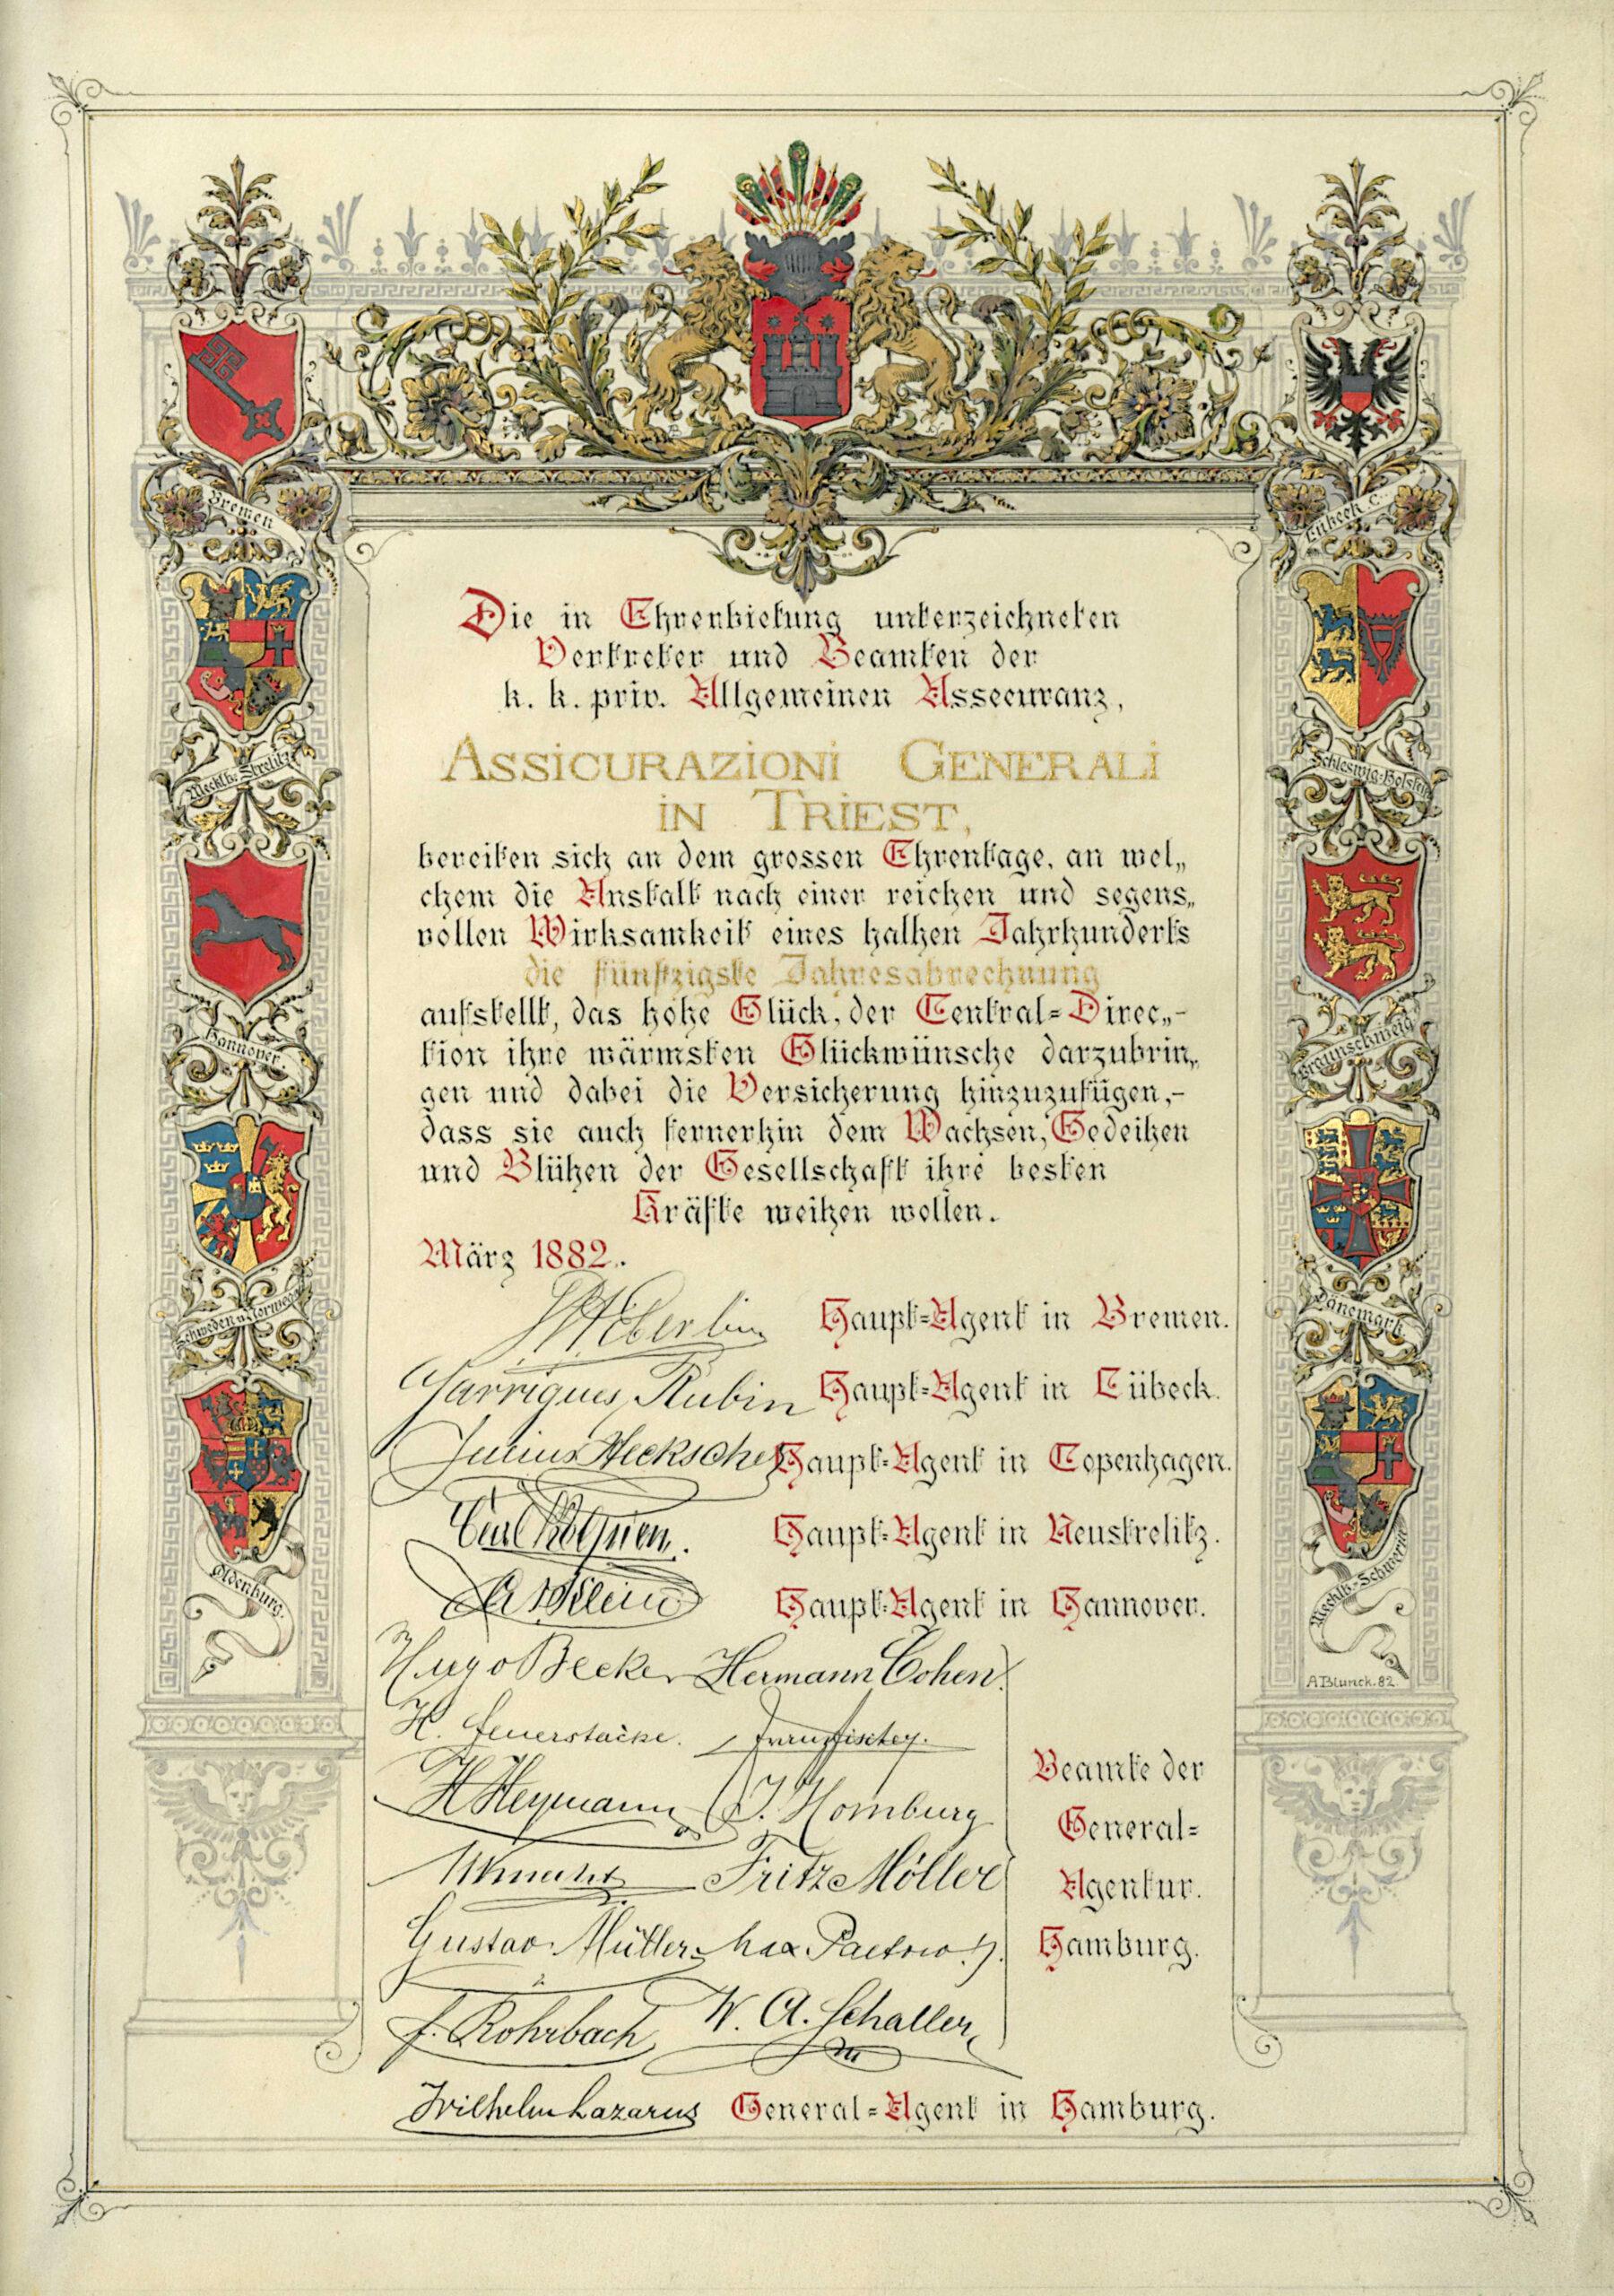 Bremen
Lübeck.
Die in Ehrenbietung unterzeichneten
Vertreter und Beamten der
k. k. priv. Allgemeinen Assecuranz,
ASSICURAZIONI GENERALI
IN TRIEST,
Mecklb: Strelitz
Schleswig-Holstein
bereiten sich an dem grossen Ehrentage, an wel„
chem die Anstalt nach einer reichen und segens„
vollen Wirksamkeit eines halben Jahrhunderts
die fünfzigste Jahresabrechnung
aufstellt, das hohe Glück, der Central-Direc„-
tion ihre wärmsten Glückwünsche darzubrin„
gen und dabei die Versicherung hinzuzufügen,-
dass sie auch fernerhin dem Wachsen, Gedeihen
und Blühen der Gesellschaft ihre besten
Kräfte weihen wollen.
Hannover.
Braunschweig
März 1882.
Schweden u. Norwegen
Dänemark
Eberlin Haupt-Agent in Bremen.
Garrigues Rubin Haupt-Agent in Lübeck.
Julius Heckscher Haupt-Agent in Copenhagen.
Carl Haupt-Agent in Neustrelitz.
Klein Haupt-Agent in Hannover.
Oldenburg.
Mecklb.-Schwerin
A Blunck. 82.
Hugo Becker Hermann Cohen
H. Feuerstacke. Franz Fischer.
H Heymann J. Homburg
Fritz Möller
Gustav Müller Max Paetow
F. Rohrbach W. A. Schaller
Beamte der
General-
Agentur.
Hamburg.
Wilhelm Lazarus General-Agent in Hamburg.